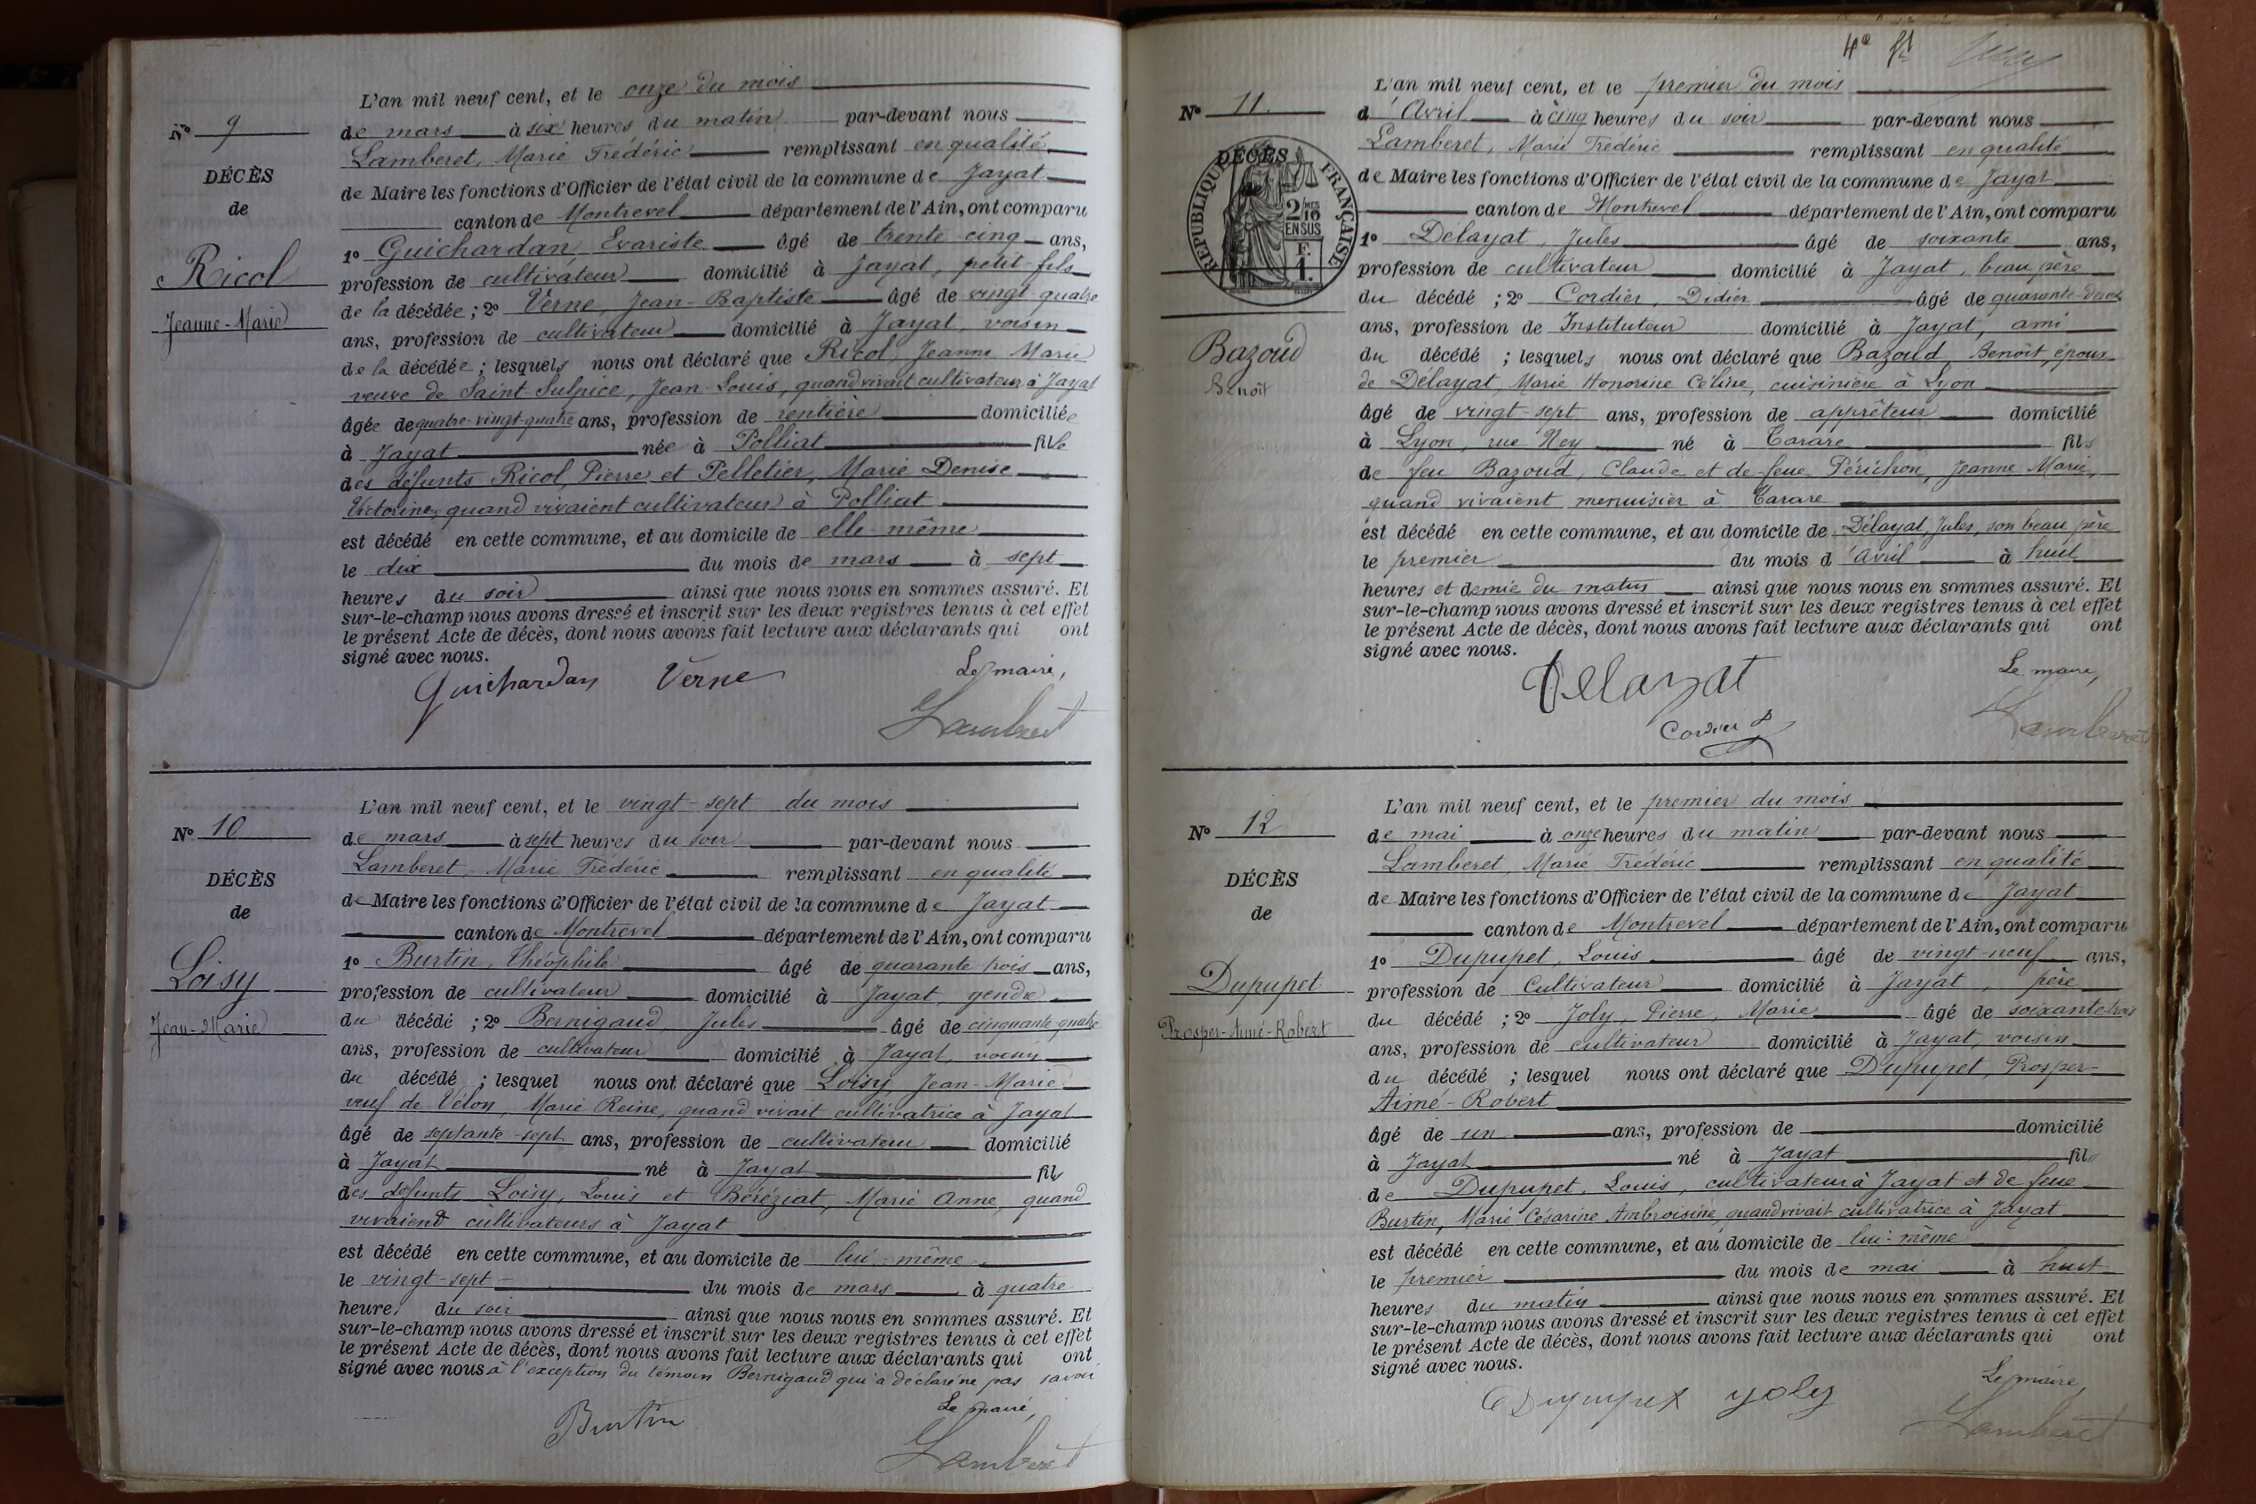 L'an mil neuf cent, et le onze du mois
No 9
de mars à six heures du matin par-devant nous
Lamberet, Marie Frédéric remplissant en qualité
DÉCÈS
de Maire les fonctions d'Officier de l'état civil de la commune de Jayat
de
canton de Montrevel département de l'Ain, ont comparu
1o Guichardan, Evariste âgé de trente cinq ans,
Ricol
profession de cultivateur domicilié à Jayat, petit-fils
de la décédée ; 2o Verne, Jean-Baptiste âgé de vingt-quatre
Jeanne-Marie
ans, profession de cultivateur domicilié à Jayat, voisin
de la décédée ; lesquels nous ont déclaré que Ricol, Jeanne Marie
veuve de Saint Sulpice, Jean-Louis, quand vivait cultivateur à Jayat
âgée de quatre-vingt-quatre ans, profession de rentière domiciliée
à Jayat née à Polliat fille
des défunts Ricol, Pierre et Pelletier, Marie Denise
Victorine, quand vivaient cultivateur à Polliat
est décédé en cette commune, et au domicile de elle-même
le dix du mois de mars à sept
heures du soir ainsi que nous nous en sommes assuré. Et
sur-le-champ nous avons dressé et inscrit sur les deux registres tenus à cet effet
le présent Acte de décès, dont nous avons fait lecture aux déclarants qui ont
signé avec nous.
Le maire,
Guichardan Verne
Lamberet
L'an mil neuf cent, et le vingt-sept du mois
No 10
de mars à sept heures du soir par-devant nous
Lamberet, Marie Frédéric remplissant en qualité
DÉCÈS
de Maire les fonctions d'Officier de l'état civil de la commune de Jayat
de
canton de Montrevel département de l'Ain, ont comparu
1o Burtin, Théophile âgé de quarante trois ans,
Loisy
profession de cultivateur domicilié à Jayat, gendre
du décédé ; 2o Bernigaud, Jules âgé de cinquante quatre
Jean-Marie
ans, profession de cultivateur domicilié à Jayat, voisin
du décédé ; lesquel nous ont déclaré que Loisy, Jean-Marie
veuf de Vélon, Marie Reine, quand vivait cultivatrice à Jayat
âgé de septante-sept ans, profession de cultivateur domicilié
à Jayat né à Jayat fils
des défunts Loisy, Louis et Béréziat, Marie Anne, quand
vivaient cultivateurs à Jayat
est décédé en cette commune, et au domicile de lui-même
le vingt-sept du mois de mars à quatre
heures du soir ainsi que nous nous en sommes assuré. Et
sur-le-champ nous avons dressé et inscrit sur les deux registres tenus à cet effet
le présent Acte de décès, dont nous avons fait lecture aux déclarants qui ont
signé avec nous à l'exception du témoin Bernigaud qui a déclaré ne pas savoir
Le maire,
Burtin
Lamberet
4e
L'an mil neuf cent, et le premier du mois
No 11
d'Avril à cinq heures du soir par-devant nous
Lamberet, Marie Frédéric remplissant en qualité
DÉCÈS
RÉPUBLIQUE FRANÇAISE
2/10 EN SUS
F. 1.
de Maire les fonctions d'Officier de l'état civil de la commune de Jayat
canton de Montrevel département de l'Ain, ont comparu
1o Delayat, Jules âgé de soixante ans,
profession de cultivateur domicilié à Jayat, beau père
du décédé ; 2o Cordier, Didier âgé de quarante-deux
ans, profession de Instituteur domicilié à Jayat, ami
Bazoud
du décédé ; lesquels nous ont déclaré que Bazoud, Benoît, époux
Benoît
de Délayat Marie Honorine Céline, cuisinière à Lyon
âgé de vingt-sept ans, profession de apprêteur domicilié
à Lyon, rue Ney né à Tarare fils
de feu Bazoud, Claude et de feue Périchon, Jeanne Marie,
quand vivaient menuisier à Tarare
est décédé en cette commune, et au domicile de Délayat, Jules, son beau père
le premier du mois d'Avril à huit
heures et demie du matin ainsi que nous nous en sommes assuré. Et
sur-le-champ nous avons dressé et inscrit sur les deux registres tenus à cet effet
le présent Acte de décès, dont nous avons fait lecture aux déclarants qui ont
signé avec nous.
Le maire,
Delayat
Cordier D
Lamberet
L'an mil neuf cent, et le premier du mois
No 12
de mai à onze heures du matin par-devant nous
Lamberet, Marie Frédéric remplissant en qualité
DÉCÈS
de Maire les fonctions d'Officier de l'état civil de la commune de Jayat
de
canton de Montrevel département de l'Ain, ont comparu
1o Dupupet, Louis âgé de vingt-neuf ans,
Dupupet
profession de Cultivateur domicilié à Jayat, père
du décédé ; 2o Joly, Pierre, Marie âgé de soixante trois
Prosper-Aimé-Robert
ans, profession de cultivateur domicilié à Jayat, voisin
du décédé ; lesquel nous ont déclaré que Dupupet, Prosper-
Aimé-Robert
âgé de un ans, profession de domicilié
à Jayat né à Jayat fils
de Dupupet, Louis, cultivateur à Jayat et de feue
Burtin, Marie Césarine Ambroisine, quand vivait cultivatrice à Jayat
est décédé en cette commune, et au domicile de lui-même
le premier du mois de mai à huit
heures du matin ainsi que nous nous en sommes assuré. Et
sur-le-champ nous avons dressé et inscrit sur les deux registres tenus à cet effet
le présent Acte de décès, dont nous avons fait lecture aux déclarants qui ont
signé avec nous.
Le maire,
Dupupet Joly
Lamberet